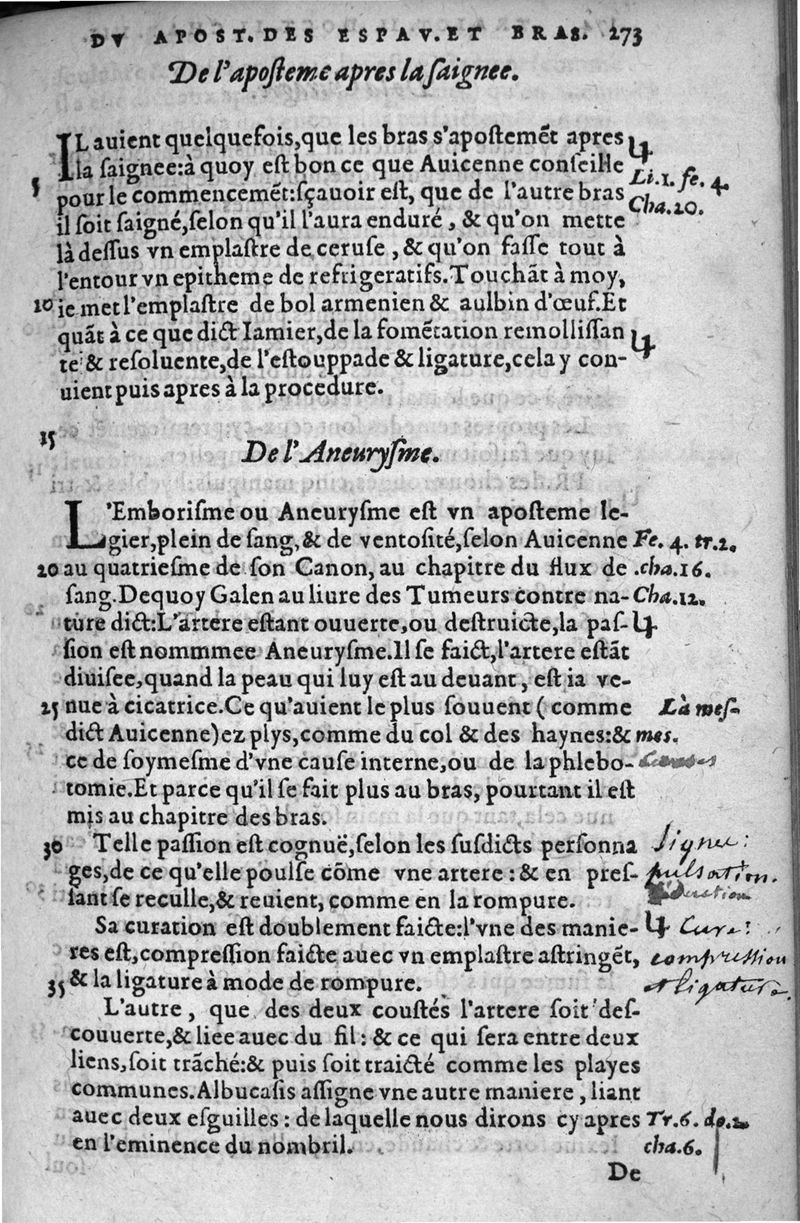 DV APOST. DES ESPAV. ET BRAS. 273
De l'aposteme apres la saignee.
IL auient quelquefois, que les bras s'apostemẽt apres
la saignee: à quoy est bon ce que Auicenne conseille
Li. 1. fe. 4.
5
pour le commencemẽt: sçauoir est, que de l'autre bras
Cha. 20.
il soit saigné, selon qu'il l'aura enduré, & qu'on mette
là dessus vn emplastre de ceruse, & qu'on fasse tout à
l'entour vn epitheme de refrigeratifs. Touchãt à moy,
10 ie met l'emplastre de bol armenien & aulbin d'œuf. Et
quãt à ce que dict Iamier, de la fomẽtation remollissan
te & resoluente, de l'estouppade & ligature, cela y con-
uient puis apres à la procedure.
15
De l'Aneurysme.
L'Emborisme ou Aneurysme est vn aposteme le-
gier, plein de sang, & de ventosité, selon Auicenne Fe. 4. tr. 2.
20 au quatriesme de son Canon, au chapitre du flux de cha. 16.
sang. Dequoy Galen au liure des Tumeurs contre na- Cha. 12.
ture dict: L'artere estant ouuerte, ou destruicte, la pas-
sion est nommmee Aneurysme. Il se faict, l'artere estãt
diuisee, quand la peau qui luy est au deuant, est ia ve-
25 nue à cicatrice. Ce qu'auient le plus souuent (comme Là mes-
dict Auicenne) ez plys, comme du col & des haynes: & mes.
ce de soymesme d'vne cause interne, ou de la phlebo- Causes
tomie. Et parce qu'il se fait plus au bras, pourtant il est
mis au chapitre des bras.
30 Telle passion est cognuë, selon les susdicts persona signe:
ges, de ce qu'elle poulse cõme vne artere: & en pres- pulsation.
sant se reculle, & reuient, comme en la rompure.
Sa curation est doublement faicte: l'vne des manie- Cure:
res est, compression faicte auec vn emplastre astringẽt, compression
35 & la ligature à mode de rompure. et ligature.
L'autre, que des deux coustés l'artere soit des-
couuerte, & liee auec du fil: & ce qui sera entre deux
liens, soit trãché: & puis soit traicté comme les playes
communes. Albucasis assigne vne autre maniere, liant
auec deux esguilles: de laquelle nous dirons cy apres Tr. 6. do. 2.
en l'eminence du nombril. cha. 6.
De